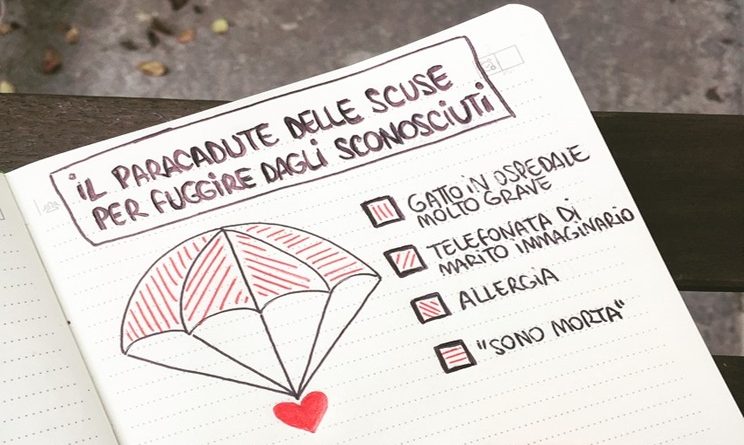 iL PARACADUTE DELLE SCUSE
PER FUGGIRE DAGLI SCONOSCIUTI
GATTO IN OSPEDALE
MOLTO GRAVE
TELEFONATA DI
MARITO IMMAGINARIO
ALLERGIA
"SONO MORTA"